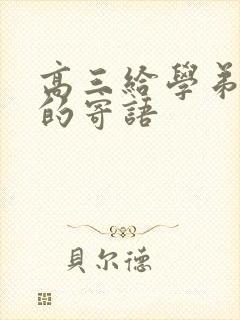 高三給學弟
的寄語
貝尔德